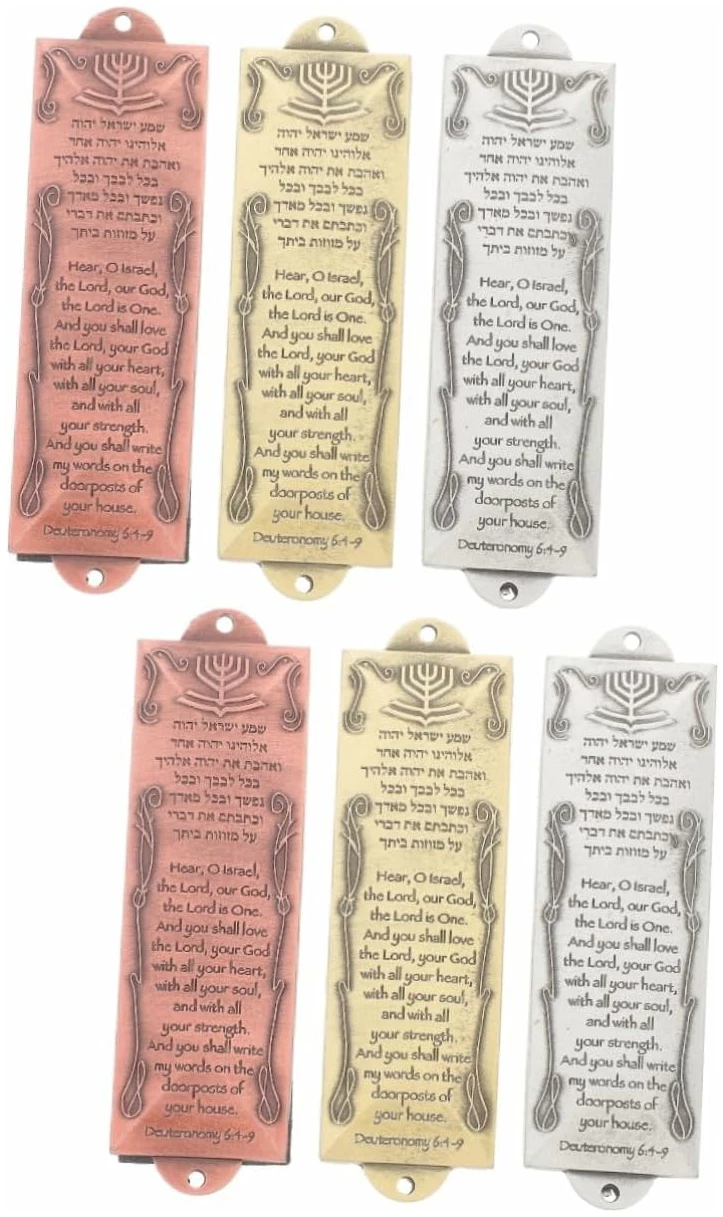 שמע ישראל יהוה
אלוהינו יהוה אחד
ואהבת את יהוה אלהיך
בכל לבבך ובכל
נפשך ובכל מאדך
וכתבתם את דברי
על מזוזות ביתך
Hear, O Israel,
the Lord, our God,
the Lord is One.
And you shall love
the Lord, your God
with all your heart,
with all your soul,
and with all
your strength.
And you shall write
my words on the
doorposts of
your house.
Deuteronomy 6:4-9
שמע ישראל יהוה
אלוהינו יהוה אחד
ואהבת את יהוה אלהיך
בכל לבבך ובכל
נפשך ובכל מאדך
וכתבתם את דברי
על מזוזות ביתך
Hear, O Israel,
the Lord, our God,
the Lord is One.
And you shall love
the Lord, your God
with all your heart,
with all your soul,
and with all
your strength.
And you shall write
my words on the
doorposts of
your house.
Deuteronomy 6:4-9
שמע ישראל יהוה
אלוהינו יהוה אחד
ואהבת את יהוה אלהיך
בכל לבבך ובכל
נפשך ובכל מאדך
וכתבתם את דברי
על מזוזות ביתך
Hear, O Israel,
the Lord, our God,
the Lord is One.
And you shall love
the Lord, your God
with all your heart,
with all your soul,
and with all
your strength.
And you shall write
my words on the
doorposts of
your house.
Deuteronomy 6:4-9
שמע ישראל יהוה
אלוהינו יהוה אחד
ואהבת את יהוה אלהיך
בכל לבבך ובכל
נפשך ובכל מאדך
וכתבתם את דברי
על מזוזות ביתך
Hear, O Israel,
the Lord, our God,
the Lord is One.
And you shall love
the Lord, your God
with all your heart,
with all your soul,
and with all
your strength.
And you shall write
my words on the
doorposts of
your house.
Deuteronomy 6:4-9
שמע ישראל יהוה
אלוהינו יהוה אחד
ואהבת את יהוה אלהיך
בכל לבבך ובכל
נפשך ובכל מאדך
וכתבתם את דברי
על מזוזות ביתך
Hear, O Israel,
the Lord, our God,
the Lord is One.
And you shall love
the Lord, your God
with all your heart,
with all your soul,
and with all
your strength.
And you shall write
my words on the
doorposts of
your house.
Deuteronomy 6:4-9
שמע ישראל יהוה
אלוהינו יהוה אחד
ואהבת את יהוה אלהיך
בכל לבבך ובכל
נפשך ובכל מאדך
וכתבתם את דברי
על מזוזות ביתך
Hear, O Israel,
the Lord, our God,
the Lord is One.
And you shall love
the Lord, your God
with all your heart,
with all your soul,
and with all
your strength.
And you shall write
my words on the
doorposts of
your house.
Deuteronomy 6:4-9